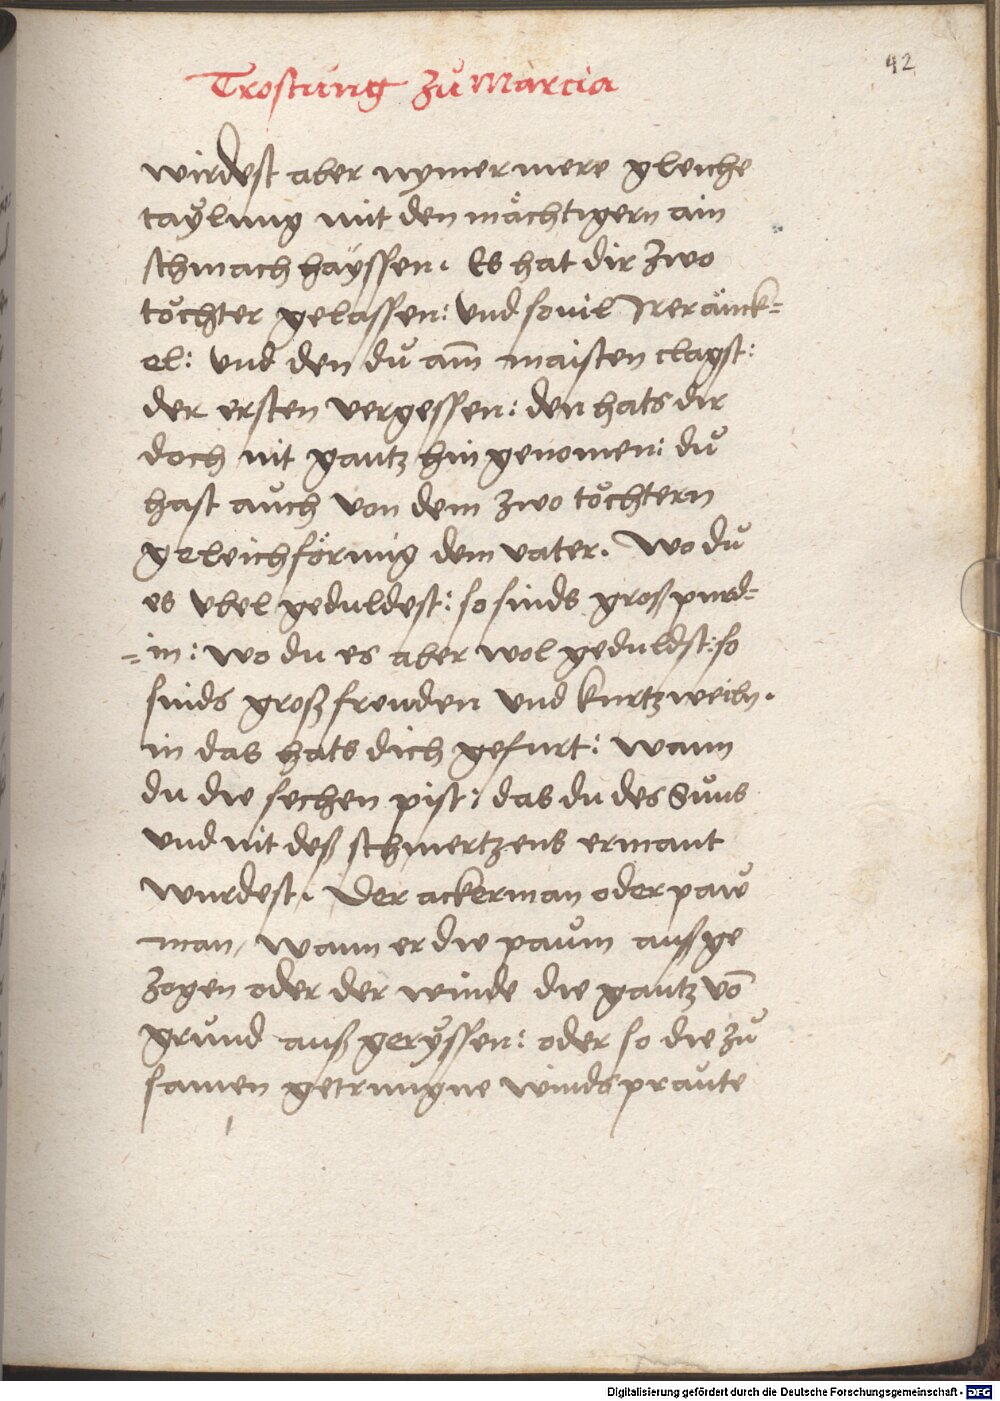 42
Trostung zů Marcia
wirdest aber nymermere gleiche
taÿlung mit den mächtigern ain
schmach haÿssen. Es hat dir zwo
töchter gelassen: und souil Irer änck=
el: und den du am̄ maisten clagst:
der ersten vergessen: den hats dir
doch nit gantz hin genomen: dů
hast aůch von dem zwo töchtern
geleichförmig dem vater. Wo dů
es vbel geduldest: so sinds groß purd=
=in: wo du es aber wol geduldst: so
sinds groß freuden und kurtzweiln.
in das hats dich gefurt: wann
du die sechen pist: das du des Sůns
und nit deß schmertzens ermant
wurdest. Der ackerman oder paw
man, wann er die paům auß ge
zogen oder der winde die gantz vō
grůnd auß gerÿssen: oder so die zů
samen getrungne windspraůte
Digitalisierung gefördert durch die Deutsche Forschungsgemeinschaft - DFG